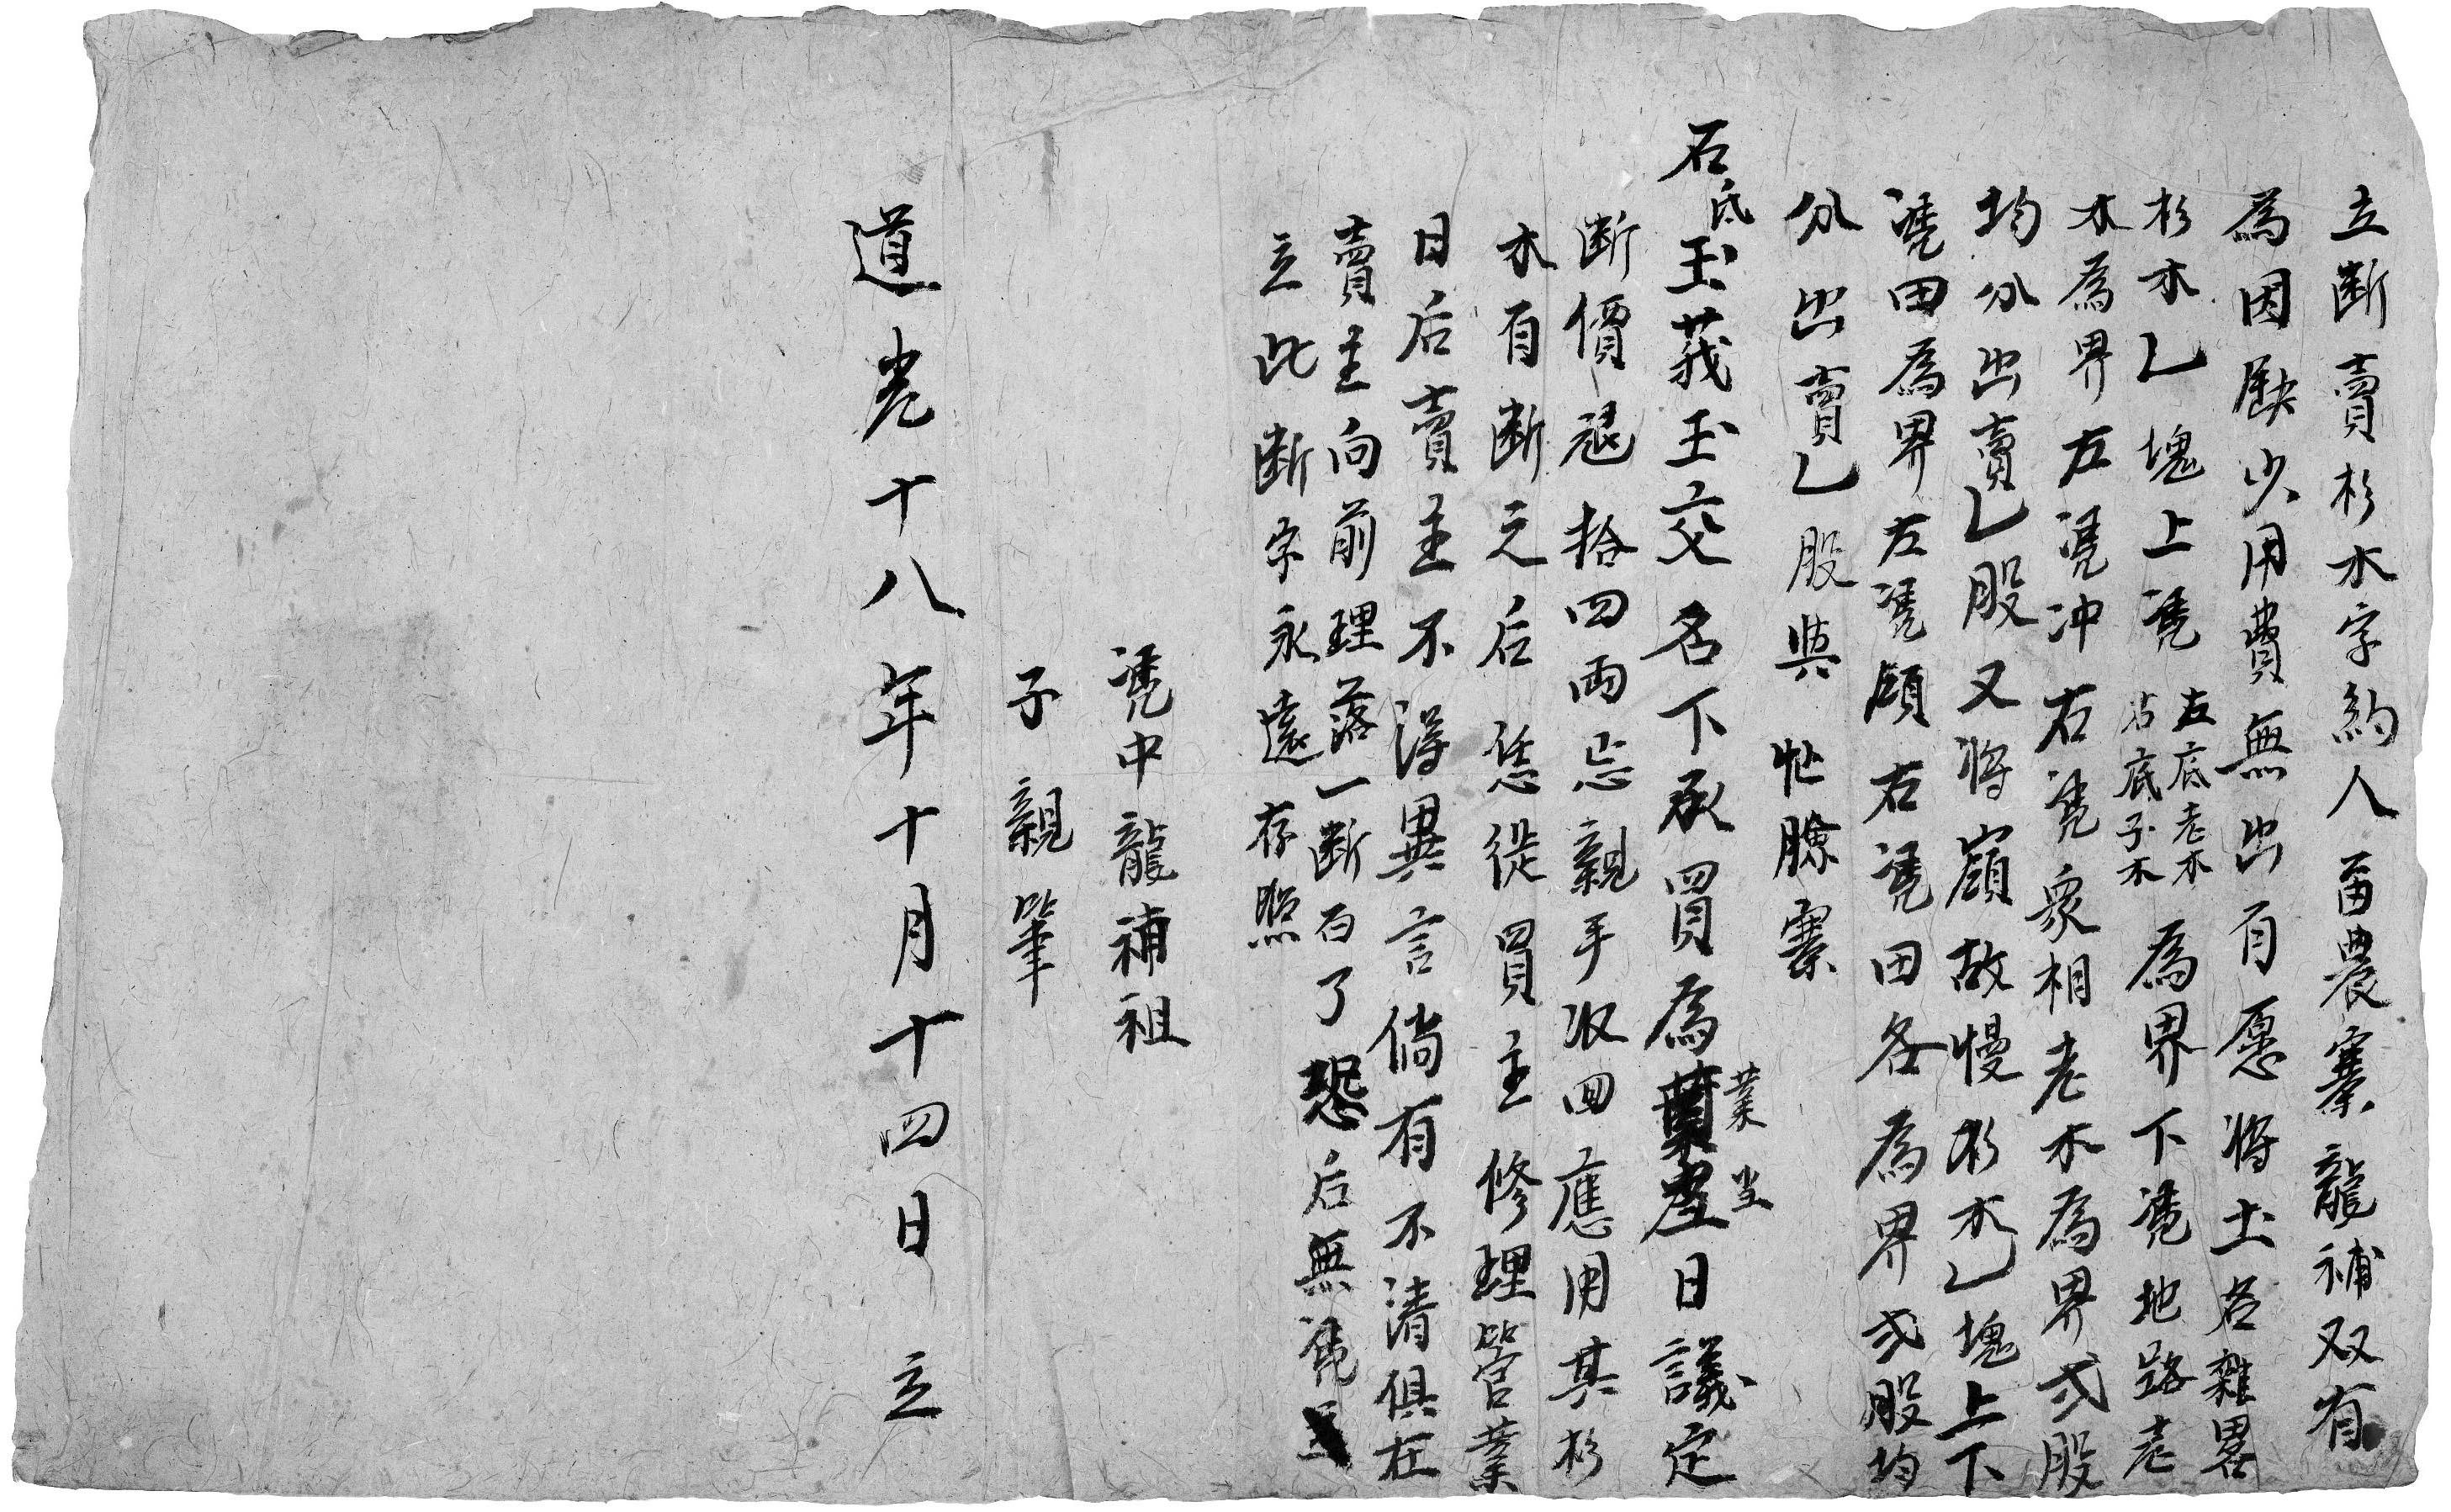 立断賣杉木字約人苗農寨龍補双有
為因缺少用費無出自愿將土名雜畧
杉木乚塊上凴左底老木右底子木為界下凴地路老
木為界左凴冲右凴衆相老木為界弍股
均分出賣乚股又將嶺故慢杉木乚塊上下
凴田為界左凴嶺右凴田各為界弍股均
分出賣乚股與 忙朦寨
石底玉莪玉交名下承買為業当日議定
断價銀拾四兩忘親手収回應用其杉
木自断之后恁從買主修理管業
日后賣主不得異言倘有不清俱在
賣主向前理落一断百了恐后無凴
立此断字永遠存照
凴中龍補祖
子親筆
道光十八年十月十四日立